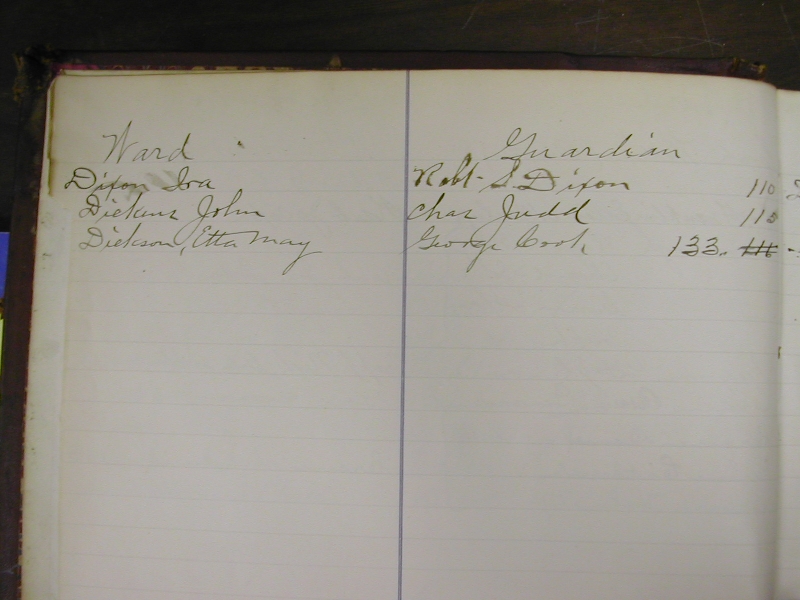 Ward Guardian
Dixon Ira Robt S Dixon 110
Dickens John Chas Judd 110
Dickson, Etta May George Cook 133. 111